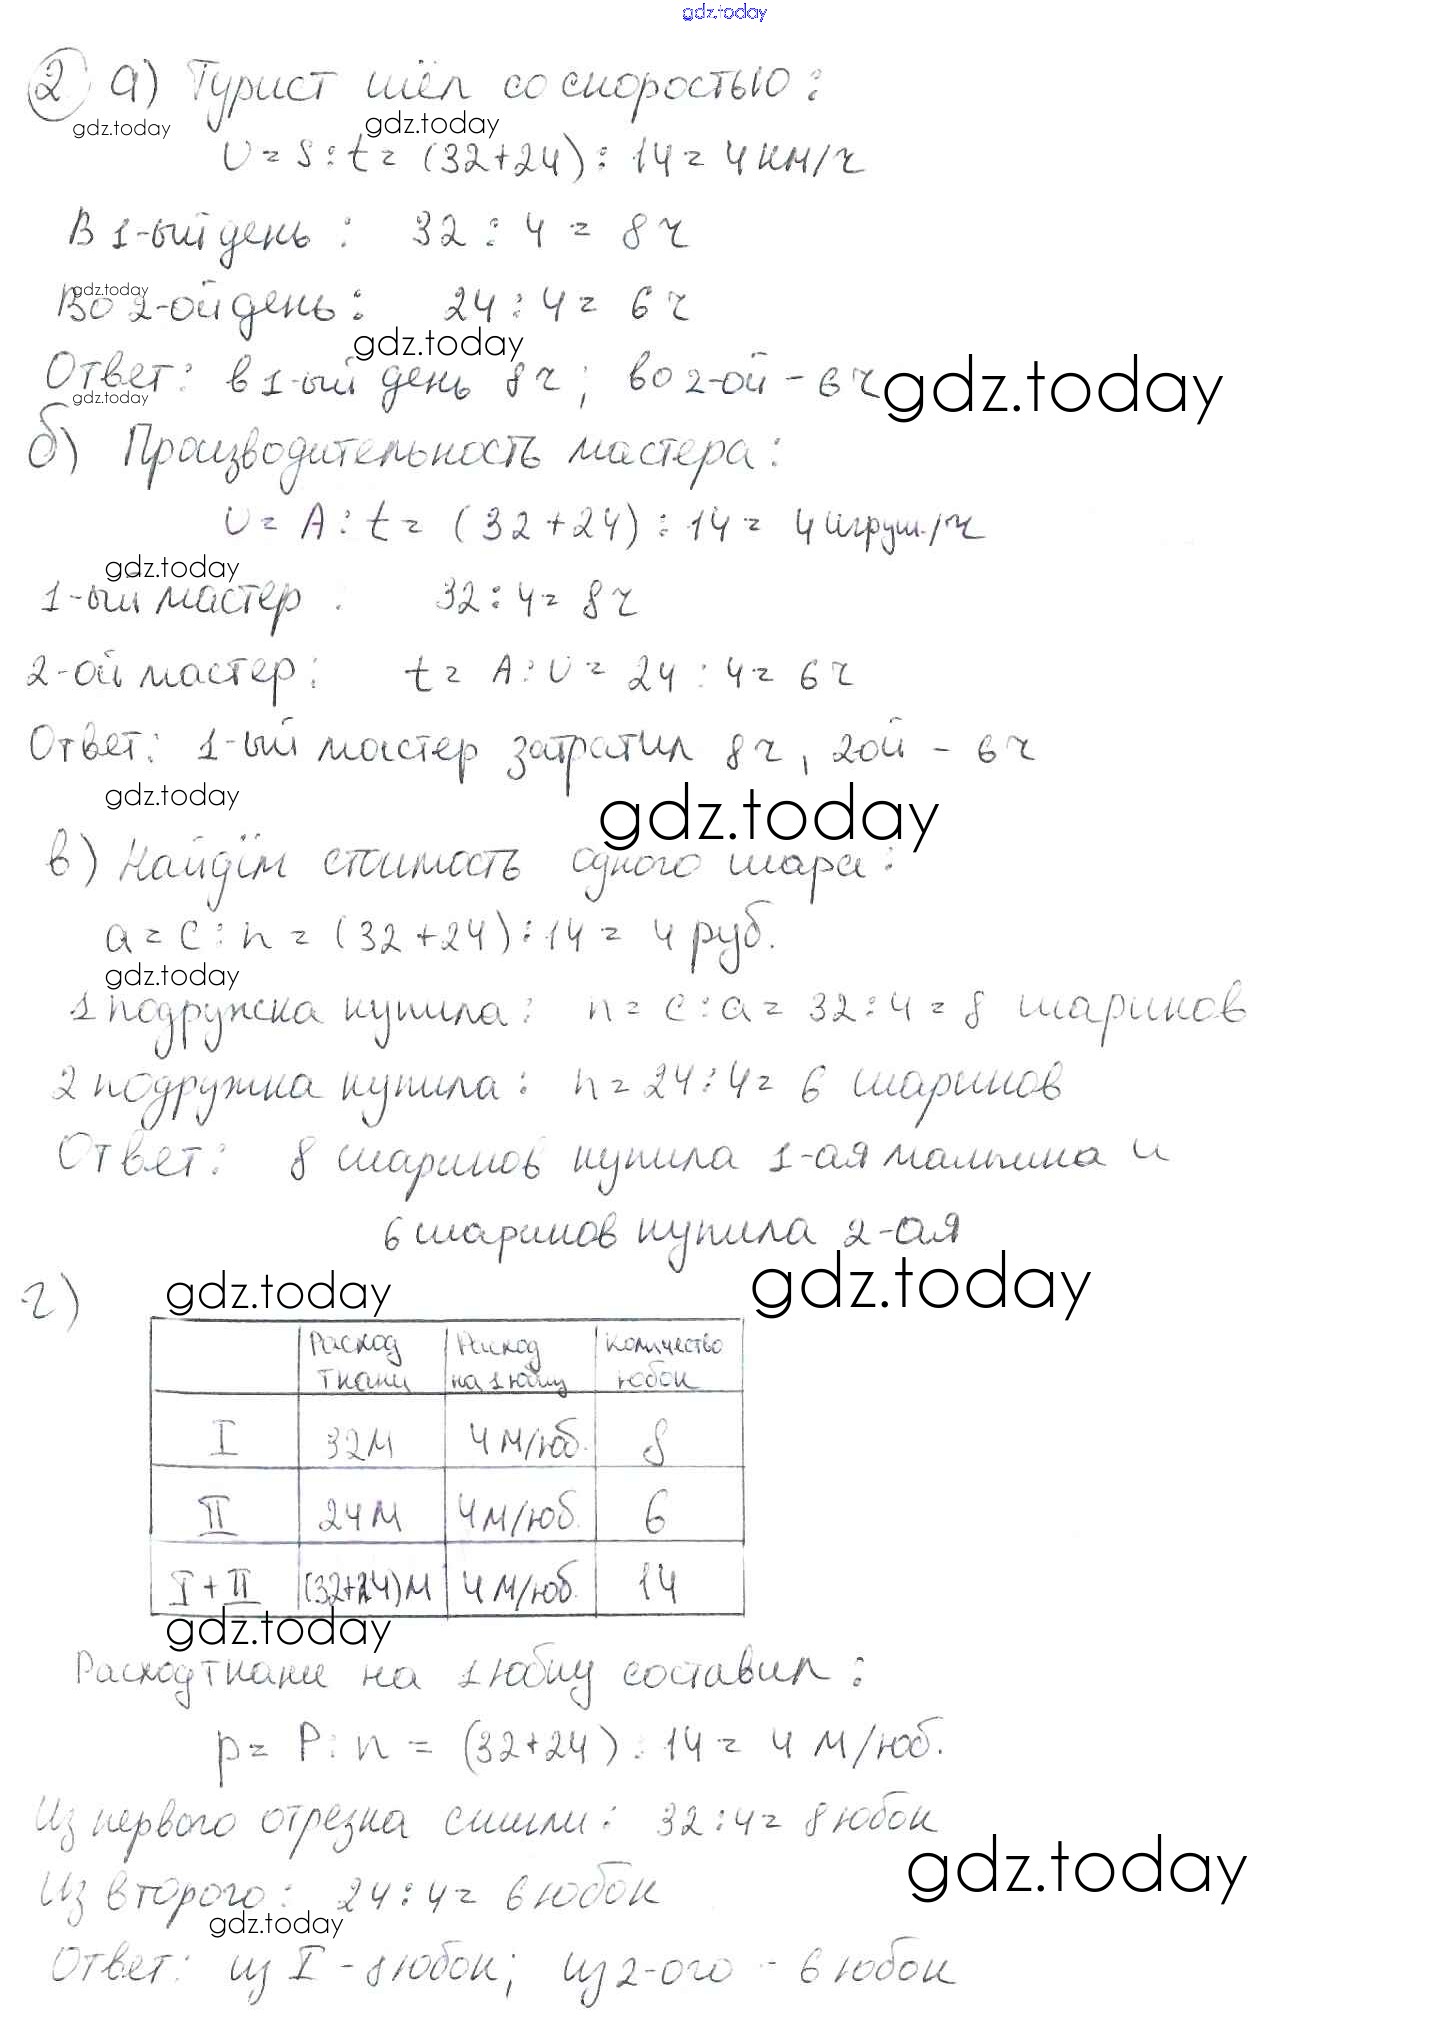 gdz.today
2 а) Турист шёл со скоростью:
gdz.today gdz.today
v = s : t = (32+24) : 14 = 4 км/ч
В 1-ый день : 32 : 4 = 8 ч
gdz.today
Во 2-ой день : 24 : 4 = 6 ч
gdz.today
Ответ: в 1-ый день 8 ч ; во 2-ой - 6 ч gdz.today
gdz.today
б) Производительность мастера :
v = A : t = (32+24) : 14 = 4 игруш./ч
gdz.today
1-ый мастер : 32 : 4 = 8 ч
2-ой мастер : t = A : v = 24 : 4 = 6 ч
Ответ: 1-ый мастер затратил 8 ч , 2ой - 6 ч
gdz.today gdz.today
в) Найдём стоимость одного шара :
a = c : n = (32+24) : 14 = 4 руб.
gdz.today
1 подружка купила : n = c : a = 32 : 4 = 8 шариков
2 подружка купила : n = 24 : 4 = 6 шариков
Ответ: 8 шариков купила 1-ая и
6 шариков купила 2-ая
г) gdz.today gdz.today
Расход Расход Количество
ткани на 1 юбку юбок
I 32 м 4 м/юб. 8
II 24 м 4 м/юб. 6
I + II (32+24) м 4 м/юб. 14
gdz.today
Расход ткани на 1 юбку составил :
p = P : n = (32+24) : 14 = 4 м/юб.
Из первого отрезка сшили : 32 : 4 = 8 юбок
gdz.today
Из второго : 24 : 4 = 6 юбок
gdz.today
Ответ: из I - 8 юбок ; из 2-ого - 6 юбок